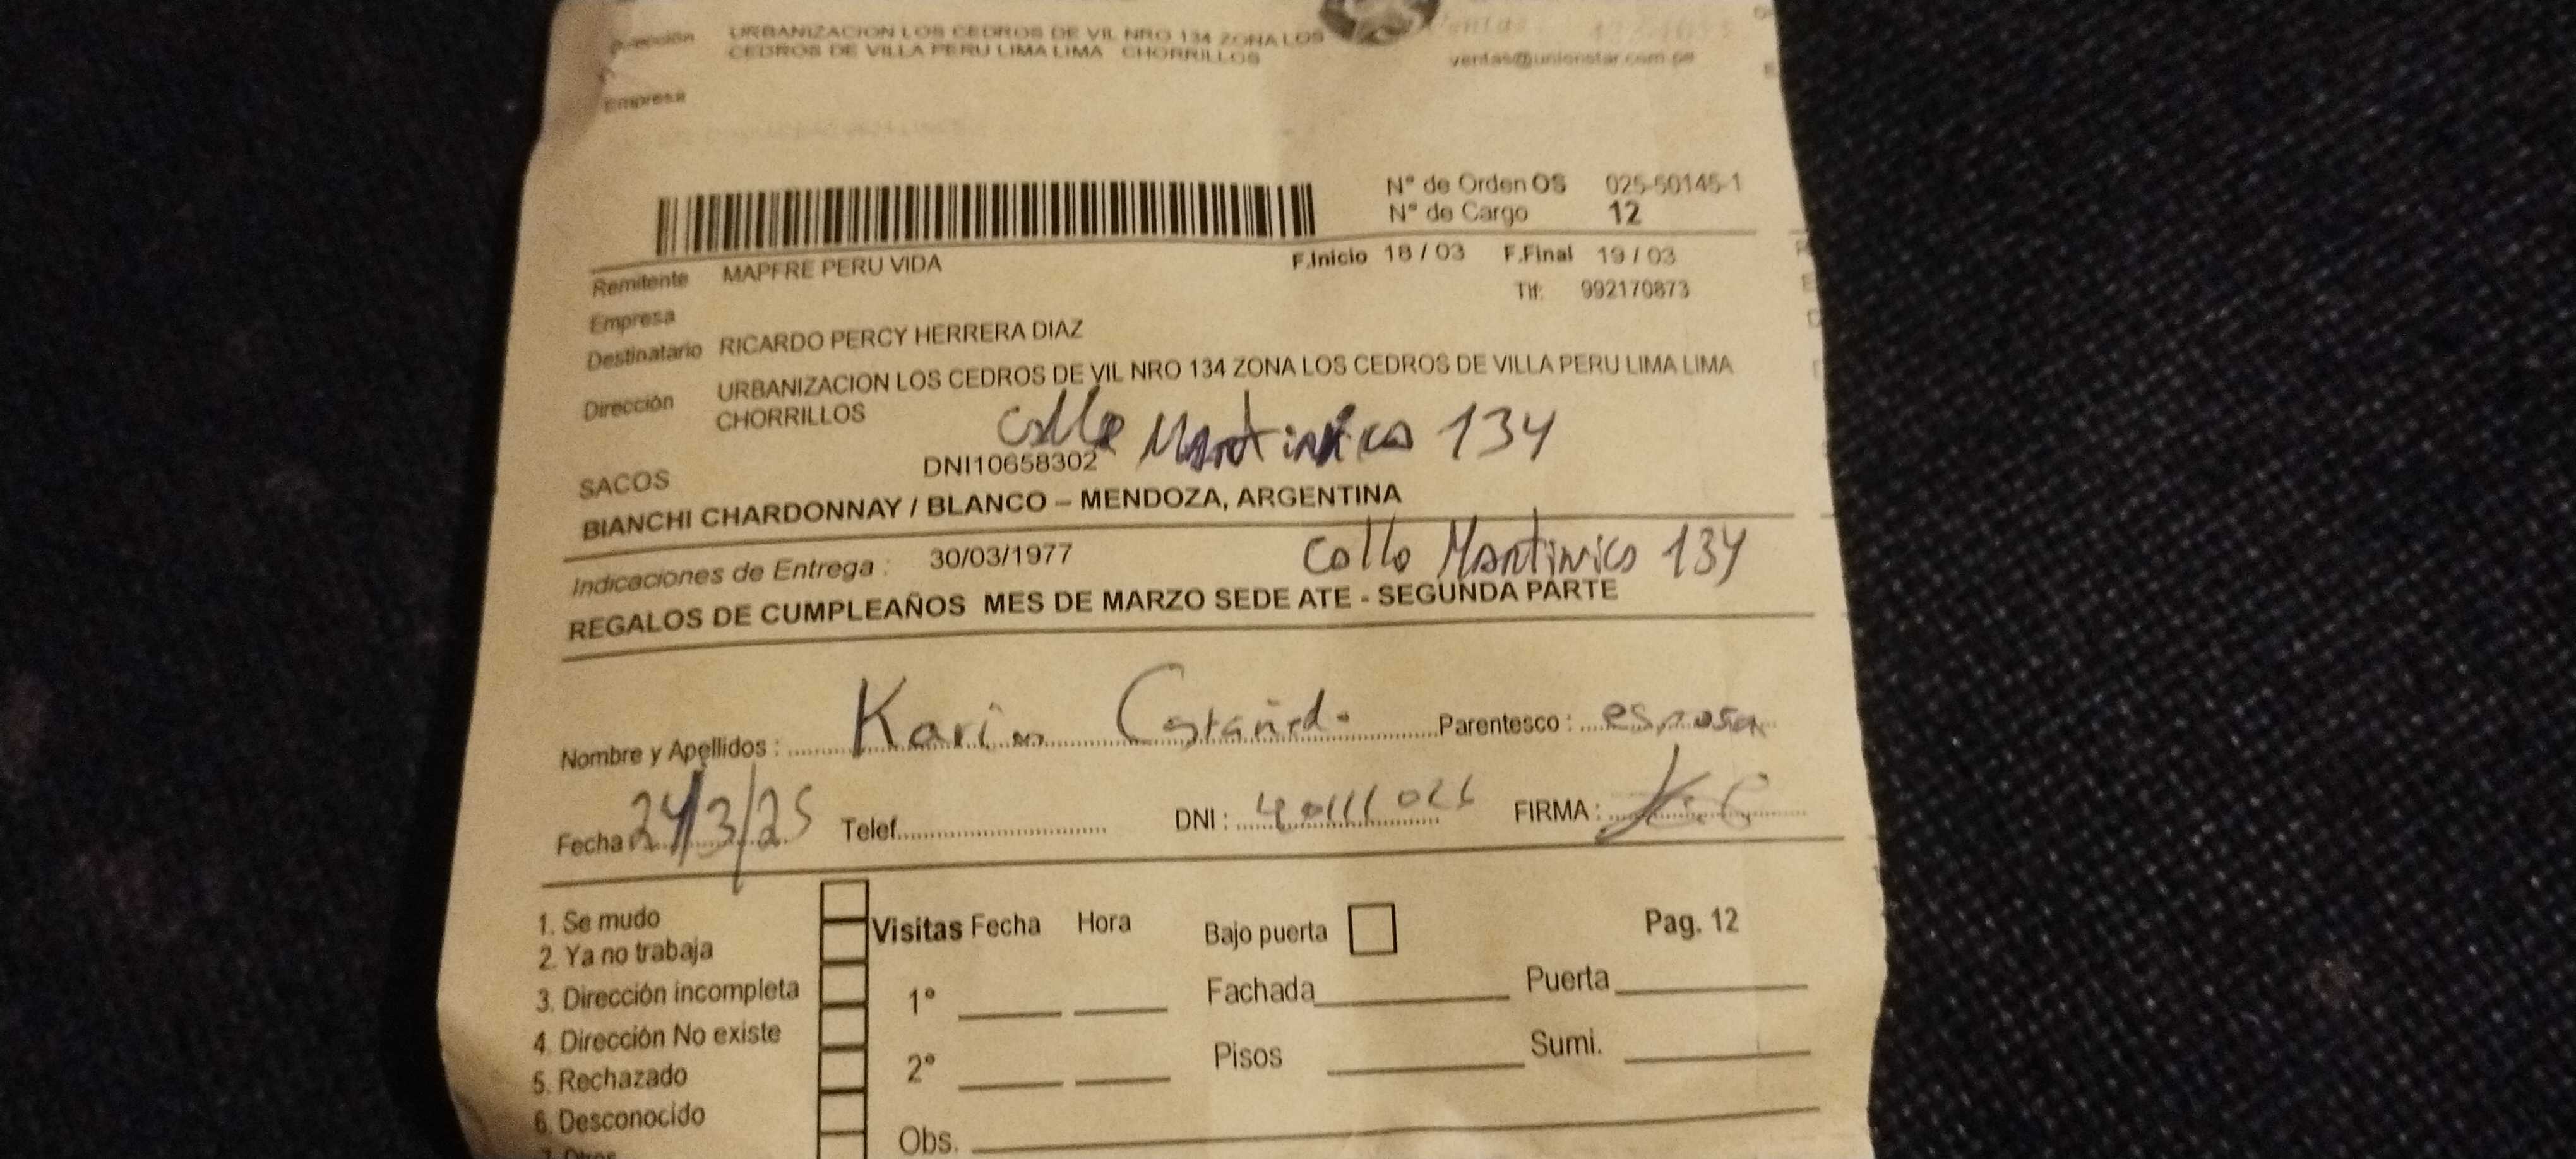 Dirección URBANIZACION LOS CEDROS DE VIL NRO 134 ZONA LOS
CEDROS DE VILLA PERU LIMA LIMA CHORRILLOS
ventas@unionstar.com.pe
Empresa
N° de Orden OS 025-50145-1
N° de Cargo 12
Remitente MAPFRE PERU VIDA F.Inicio 18 / 03 F.Final 19 / 03
Empresa Tlf: 992170873
Destinatario RICARDO PERCY HERRERA DIAZ
Dirección URBANIZACION LOS CEDROS DE VIL NRO 134 ZONA LOS CEDROS DE VILLA PERU LIMA LIMA
CHORRILLOS
Calle Martinica 134
SACOS DNI10658302
BIANCHI CHARDONNAY / BLANCO – MENDOZA, ARGENTINA
Indicaciones de Entrega : 30/03/1977 Calle Martinica 134
REGALOS DE CUMPLEAÑOS MES DE MARZO SEDE ATE - SEGUNDA PARTE
Nombre y Apellidos : Karim Castañeda Parentesco : esposa
Fecha 24/3/25 Telef. DNI : FIRMA :
1. Se mudo
2. Ya no trabaja
3. Dirección incompleta
4. Dirección No existe
5. Rechazado
6. Desconocido
7. Otros
Visitas Fecha Hora Bajo puerta Pag. 12
1° Fachada Puerta
2° Pisos Sumi.
Obs.